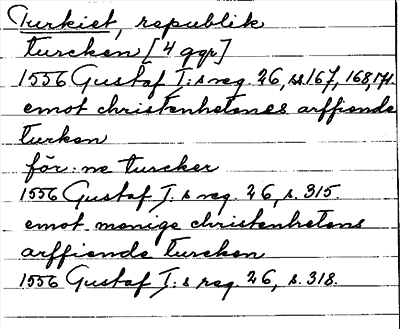 Turkiet, republik
turcken [4 ggr]
1556 Gustaf I:s reg. 26, ss. 167, 168, 171.
emot christenhetenes arffiende
turken
för:ne turcker
1556 Gustaf I:s reg. 26, s. 315.
emot menige christenhetens
arffiende turcken
1556 Gustaf I:s reg. 26, s. 318.